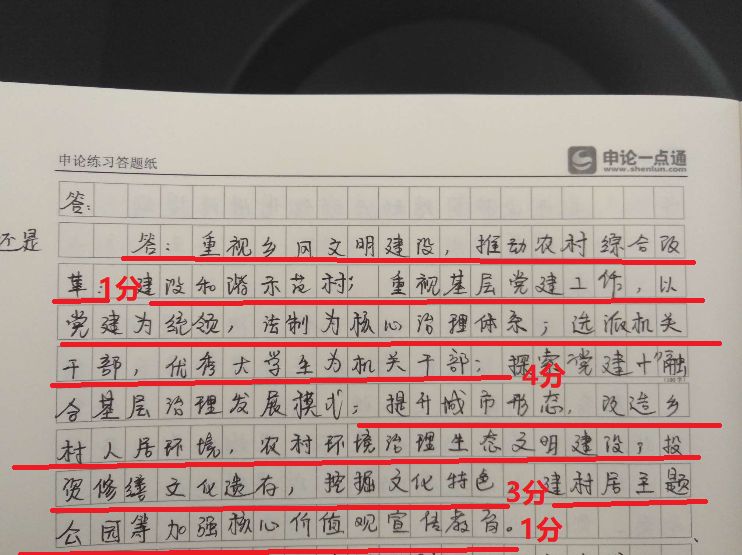 申论练习答题纸
申论一点通
www.shenlun.com
答:
还是
答:重视乡风文明建设,推动农村综合改
革;建设和谐示范村;重视基层党建工作,以
1分
党建为统领,法制为核心治理体系;选派机关
干部,优秀大学生为机关干部;探索"党建+"融
4分
合基层治理发展模式;提升城市形态,改造乡
村人居环境,农村环境治理生态文明建设;投
资修缮文化遗存,挖掘文化特色 建村居主题
3分
公园等加强核心价值观宣传教育。
1分